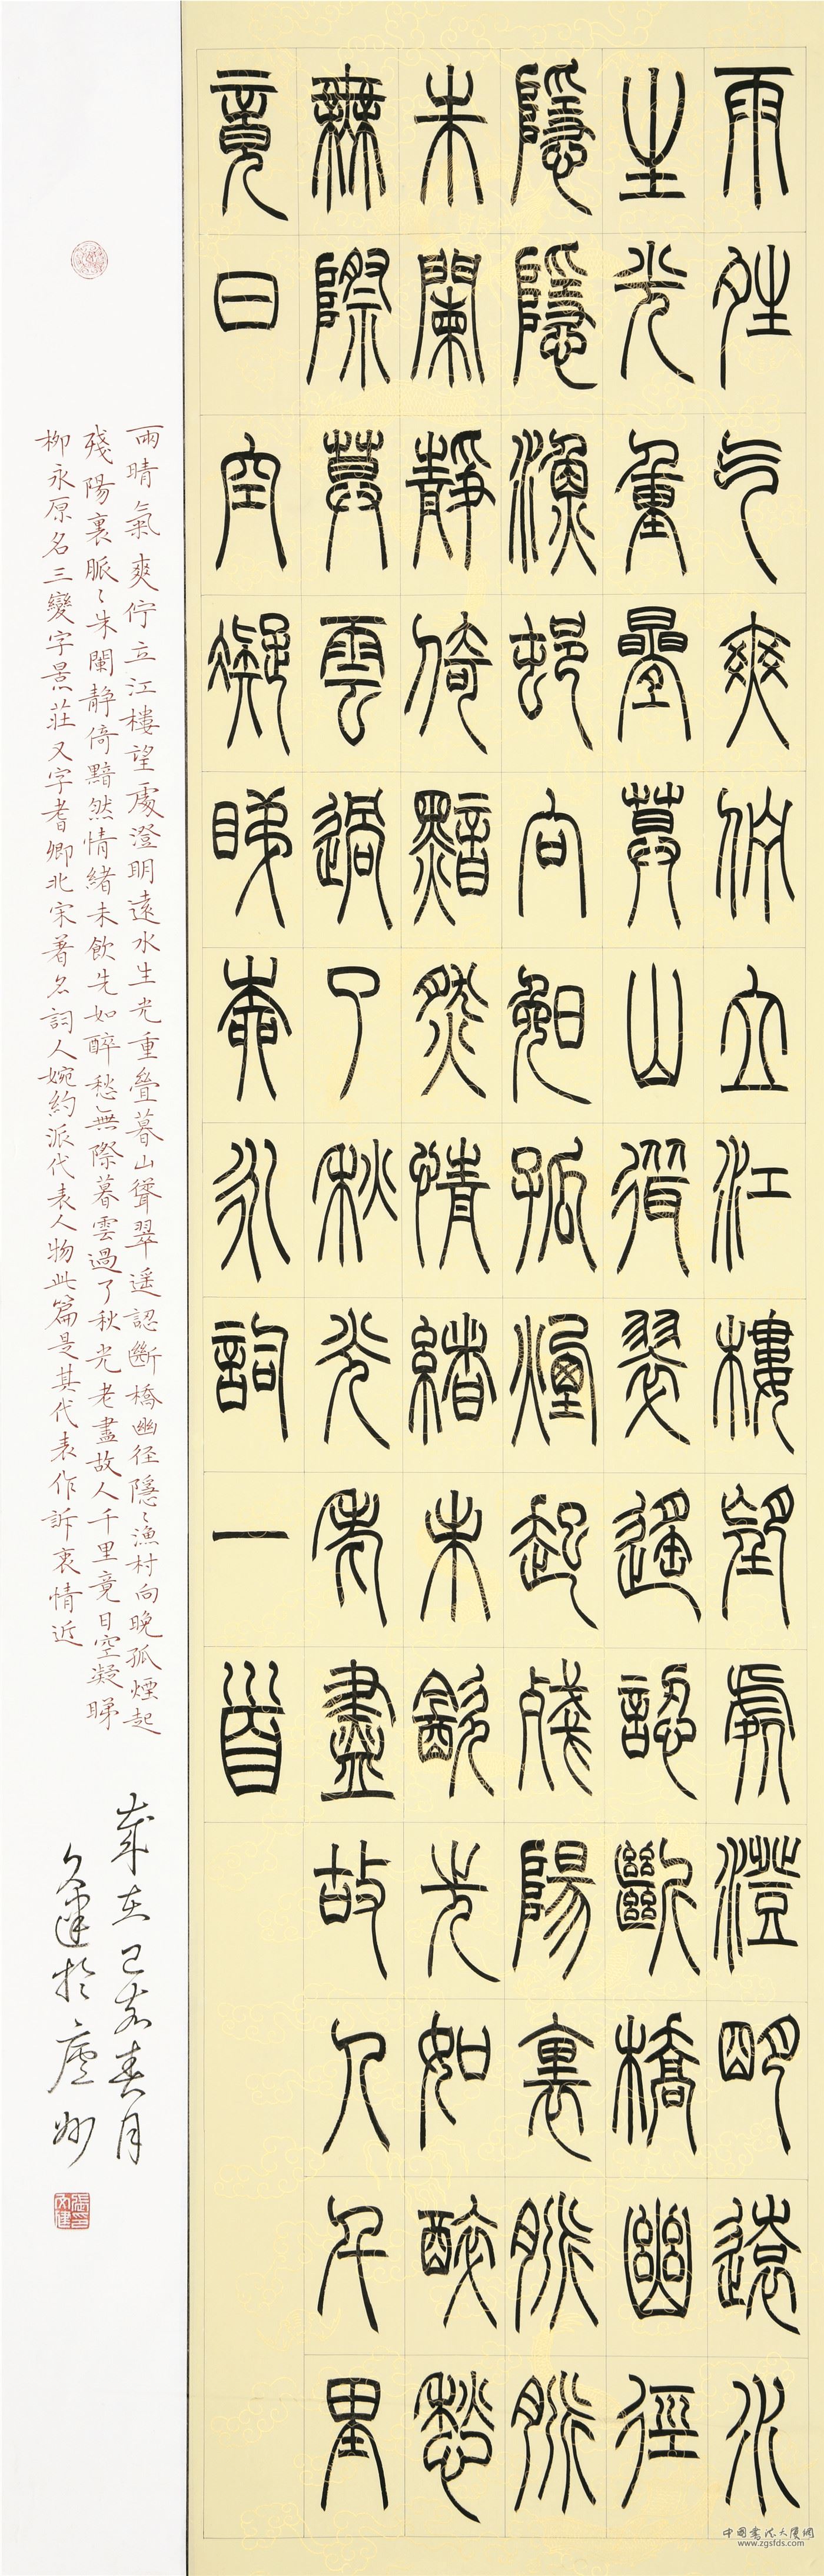 雨姓气爽佇立江樓望處澄明遠水
生光重疊暮山聳翠遥認斷橋幽徑
隱隱漁邨向晚孤煙起殘陽裏脈脈
朱闌静倚黯然情緒未飲先如醉愁
無際暮雲過了秋光老盡故人千里
竟日空凝睇柳永詞一首
雨晴氣爽佇立江樓望處澄明遠水生光重疊暮山聳翠遥認斷橋幽径隱〻漁村向晚孤煙起
殘陽裏脈〻朱闌静倚黯然情緒未飲先如醉愁無際暮雲過了秋光老盡故人千里竟日空凝睇
柳永原名三變字景莊又字耆卿北宋著名詞人婉約派代表人物此篇是其代表作訴衷情近
歲在己亥春月
久建於廬州
中国書法大廈網
www.zgsfds.com